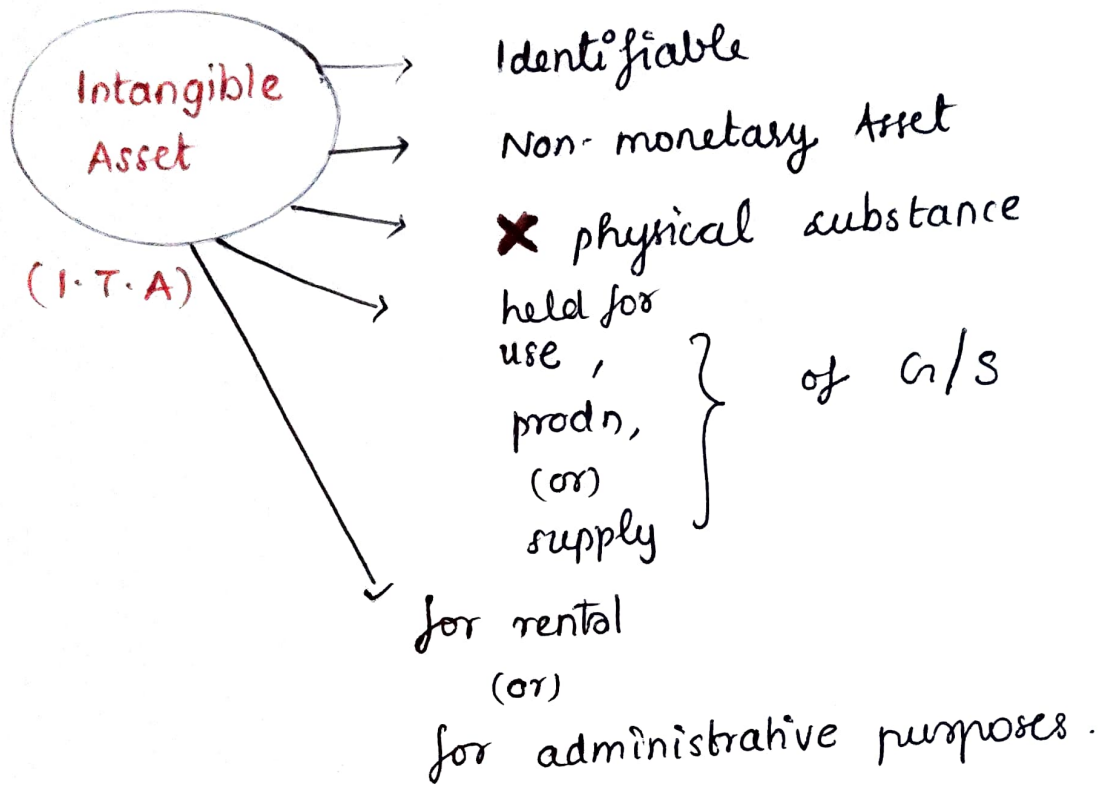 Intangible
Asset
(I.T.A)
Identifiable
Non-monetary Asset
✗ physical substance
held for
use,
prodn,
(or)
supply
} of G/S
for rental
(or)
for administrative purposes.